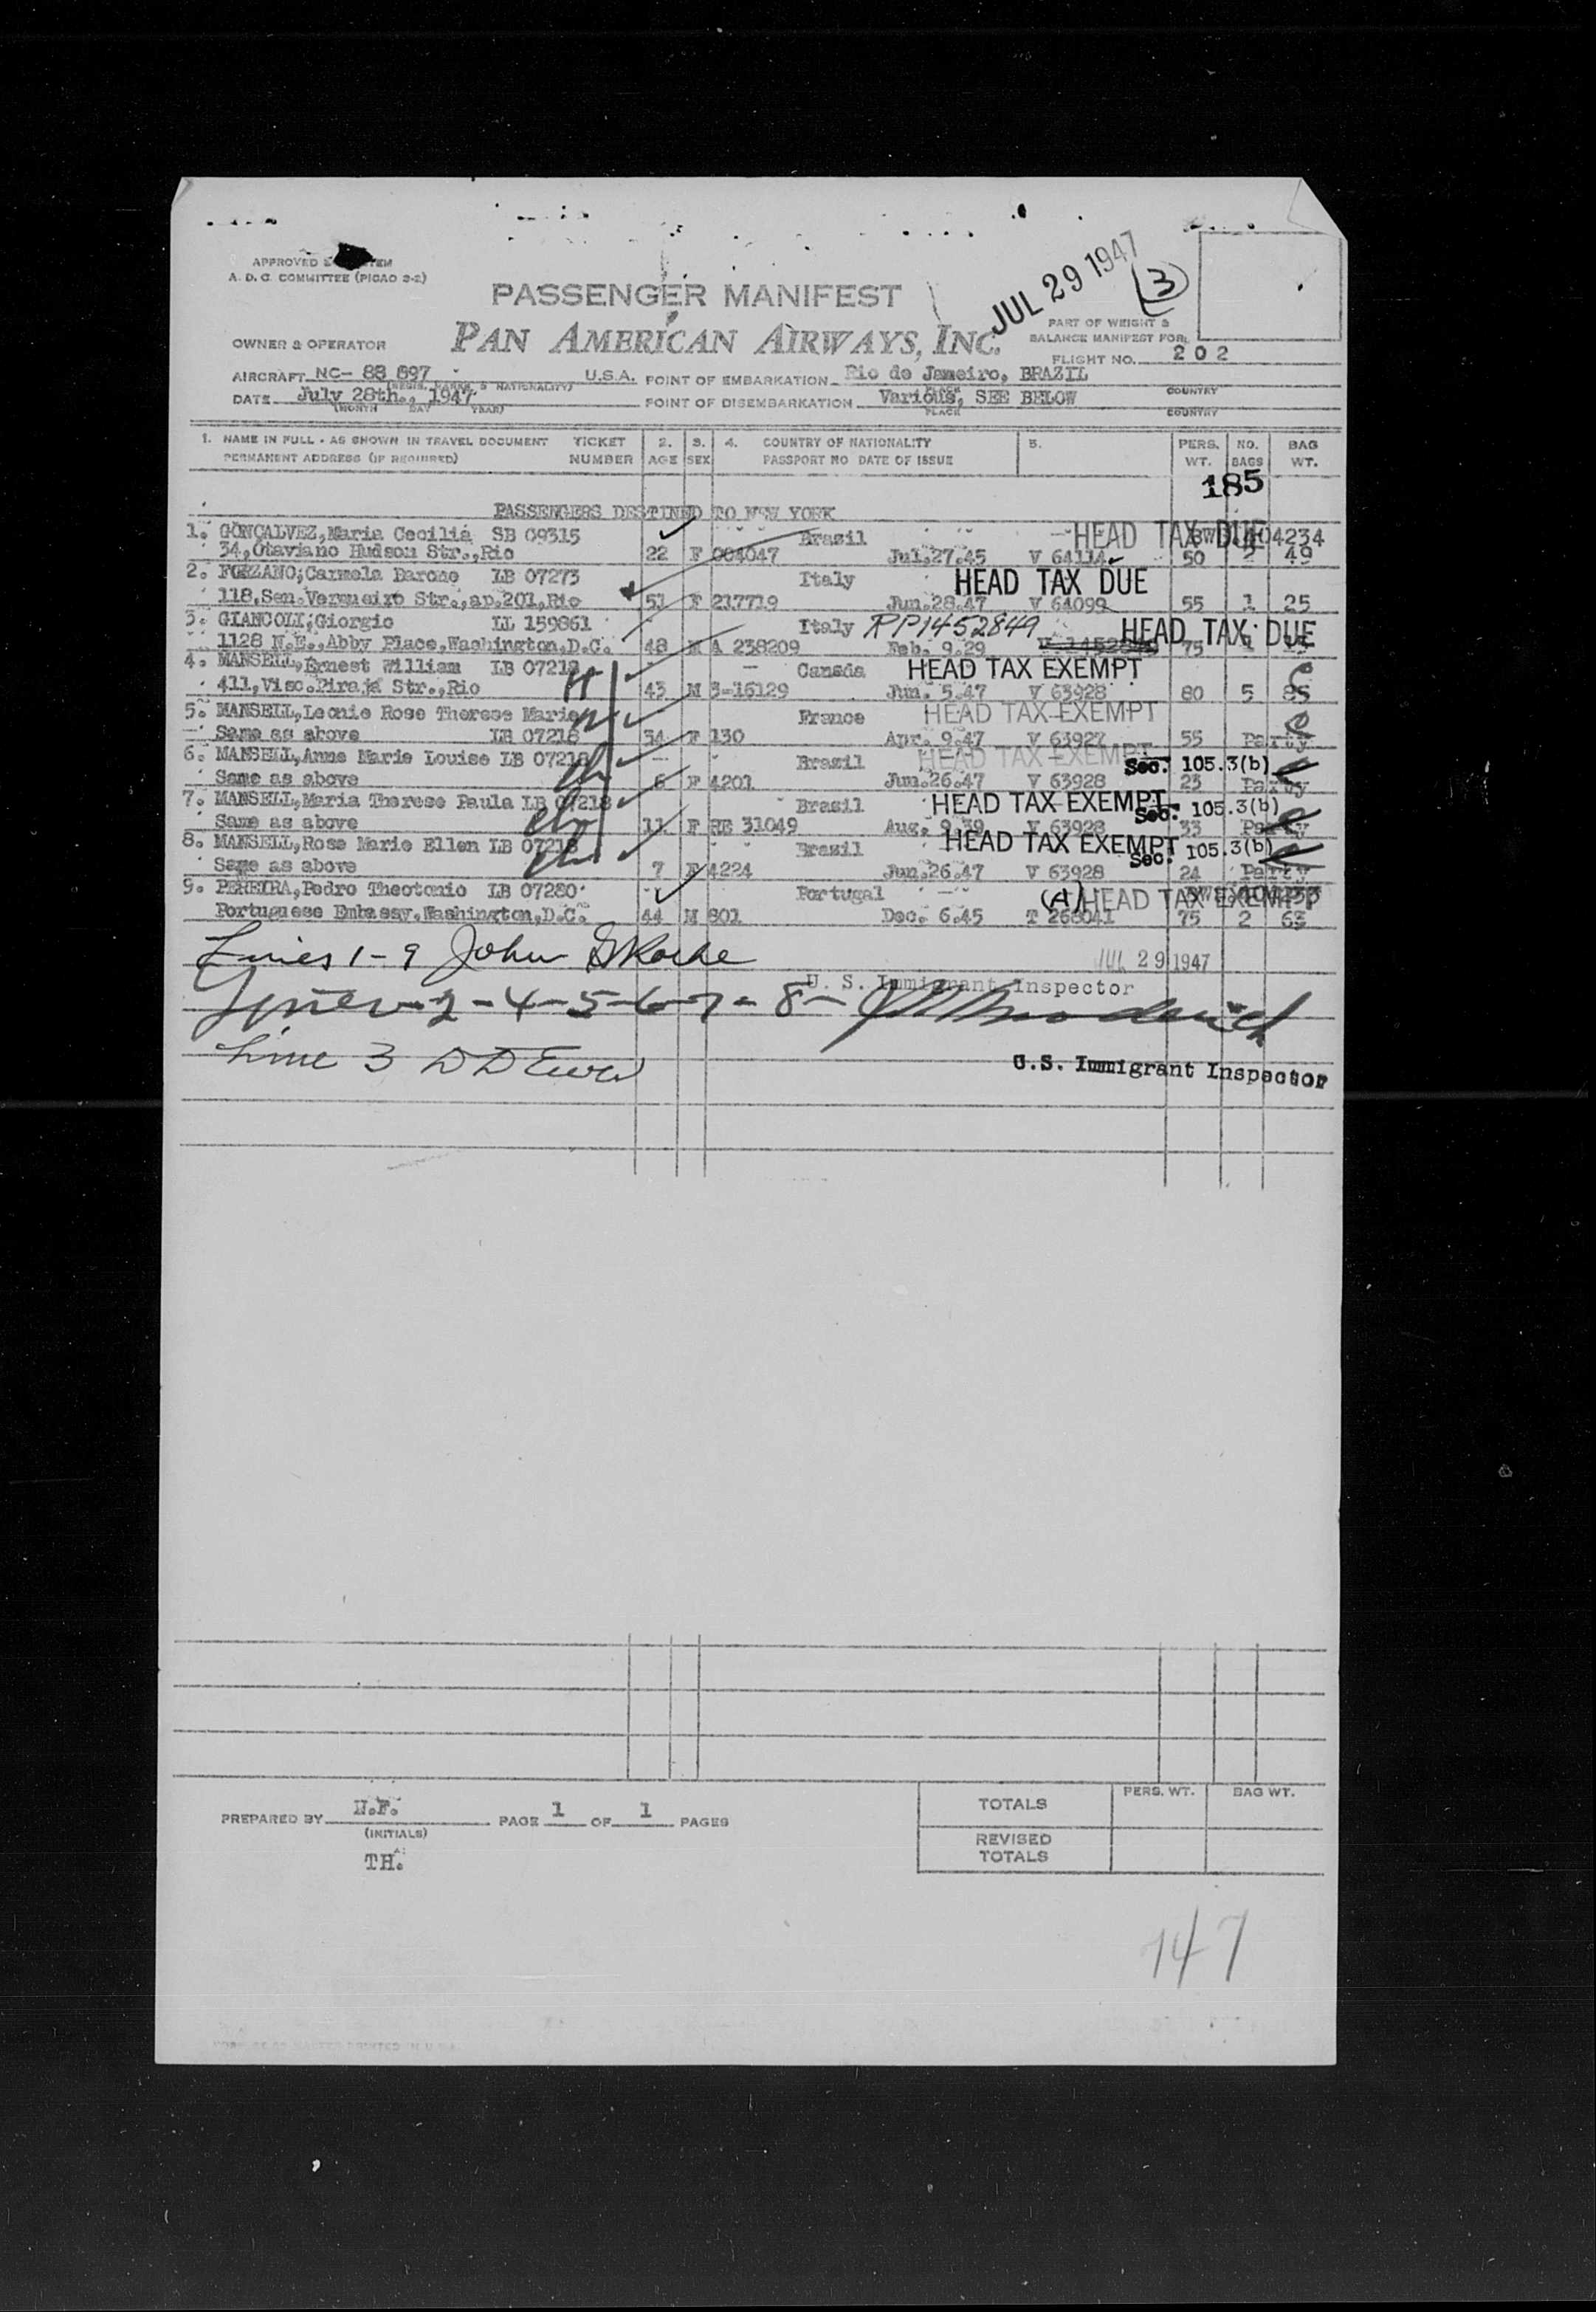 JUL 29 1947
3
APPROVED
A. D. C. COMMITTEE (PICAO 2-2)
PASSENGER MANIFEST
PAN AMERICAN AIRWAYS, INC.
PART OF WEIGHT &
BALANCE MANIFEST FOR:
OWNER & OPERATOR
FLIGHT NO. 202
AIRCRAFT NC- 88 897 U.S.A. POINT OF EMBARKATION Rio de Janeiro, BRAZIL
(REGIS. MARKS & NATIONALITY) PLACE COUNTRY
DATE July 28th., 1947 POINT OF DISEMBARKATION Various, SEE BELOW
(MONTH DAY YEAR) PLACE COUNTRY
1. NAME IN FULL - AS SHOWN IN TRAVEL DOCUMENT TICKET 2. 3. 4. COUNTRY OF NATIONALITY 5. PERS. NO. BAG
PERMANENT ADDRESS (IF REQUIRED) NUMBER AGE SEX PASSPORT NO DATE OF ISSUE WT. BAGS WT.
185
PASSENGERS DESTINED TO NEW YORK
1. GONÇALVEZ,Maria Cecilia SB 09315 Brasil HEAD TAX DUE 04234
34,Otaviano Hudson Str.,Rio 22 F 004047 Jul.27.45 V 64114 50 2 49
2. FORZANO,Carmela Barone LB 07273 Italy HEAD TAX DUE
118,Sen.Vergueiro Str.,ap.201,Rio 51 F 217719 Jun.28.47 V 64099 55 1 25
3. GIANCOLI,Giorgio LL 159861 Italy RP1452849 HEAD TAX DUE
1128 N.E.,Abby Place,Washington,D.C. 48 M A 238209 Feb. 9.29 75
4. MANSELL,Ernest William LB 07218 Canada HEAD TAX EXEMPT
411,Visc.Pirajá Str.,Rio 43 M 3-16129 Jun. 5.47 V 63928 80 5 85
5. MANSELL,Leonie Rose Therese Marie France HEAD TAX EXEMPT
Same as above LB 07218 34 F 130 Apr. 9.47 V 63927 55 Party
6. MANSELL,Anne Marie Louise LB 07218 Brasil HEAD TAX EXEMPT Sec. 105.3(b)
Same as above 6 F 4201 Jun.26.47 V 63928 23 Party
7. MANSELL,Maria Therese Paula LB 07218 Brasil HEAD TAX EXEMPT Sec. 105.3(b)
Same as above 11 F RE 31049 Aug. 9.39 V 63928 33 Party
8. MANSELL,Rose Marie Ellen LB 07218 Brasil HEAD TAX EXEMPT Sec. 105.3(b)
Same as above 7 F 4224 Jun.26.47 V 63928 24 Party
9. PEREIRA,Pedro Theotonio LB 07280 Portugal (A) HEAD TAX EXEMPT
Portuguese Embassy,Washington,D.C. 44 M 801 Dec. 6.45 T 268041 75 2 63
Lines 1-9 John
JUL 29 1947
U. S. Immigrant Inspector
Lines-2-4-5-6-7-8-
Line 3
U.S. Immigrant Inspector
PREPARED BY H.F. PAGE 1 OF 1 PAGES
(INITIALS)
TH.
PERS. WT. BAG WT.
TOTALS
REVISED
TOTALS
147